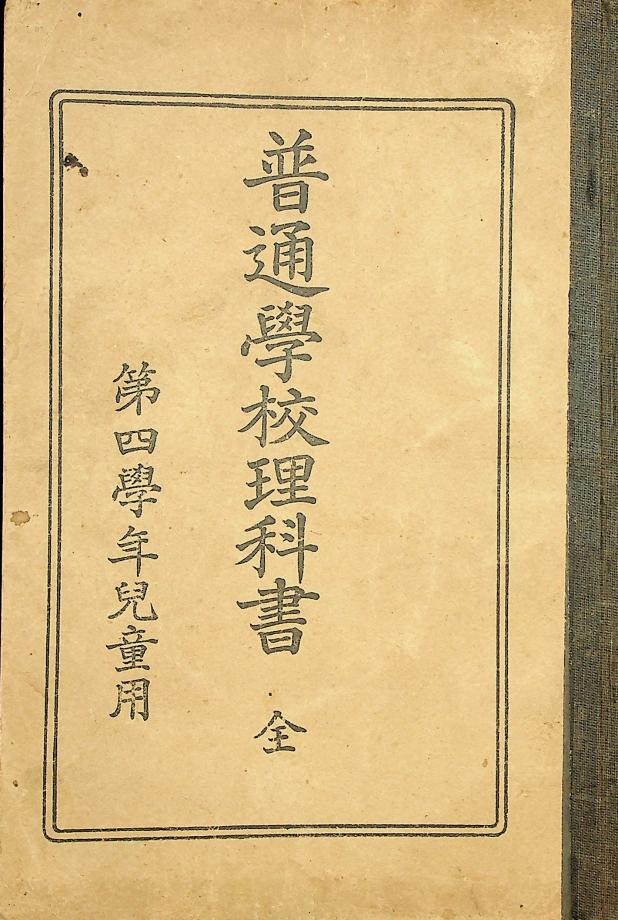 普通學校理科書 全
第四學年兒童用